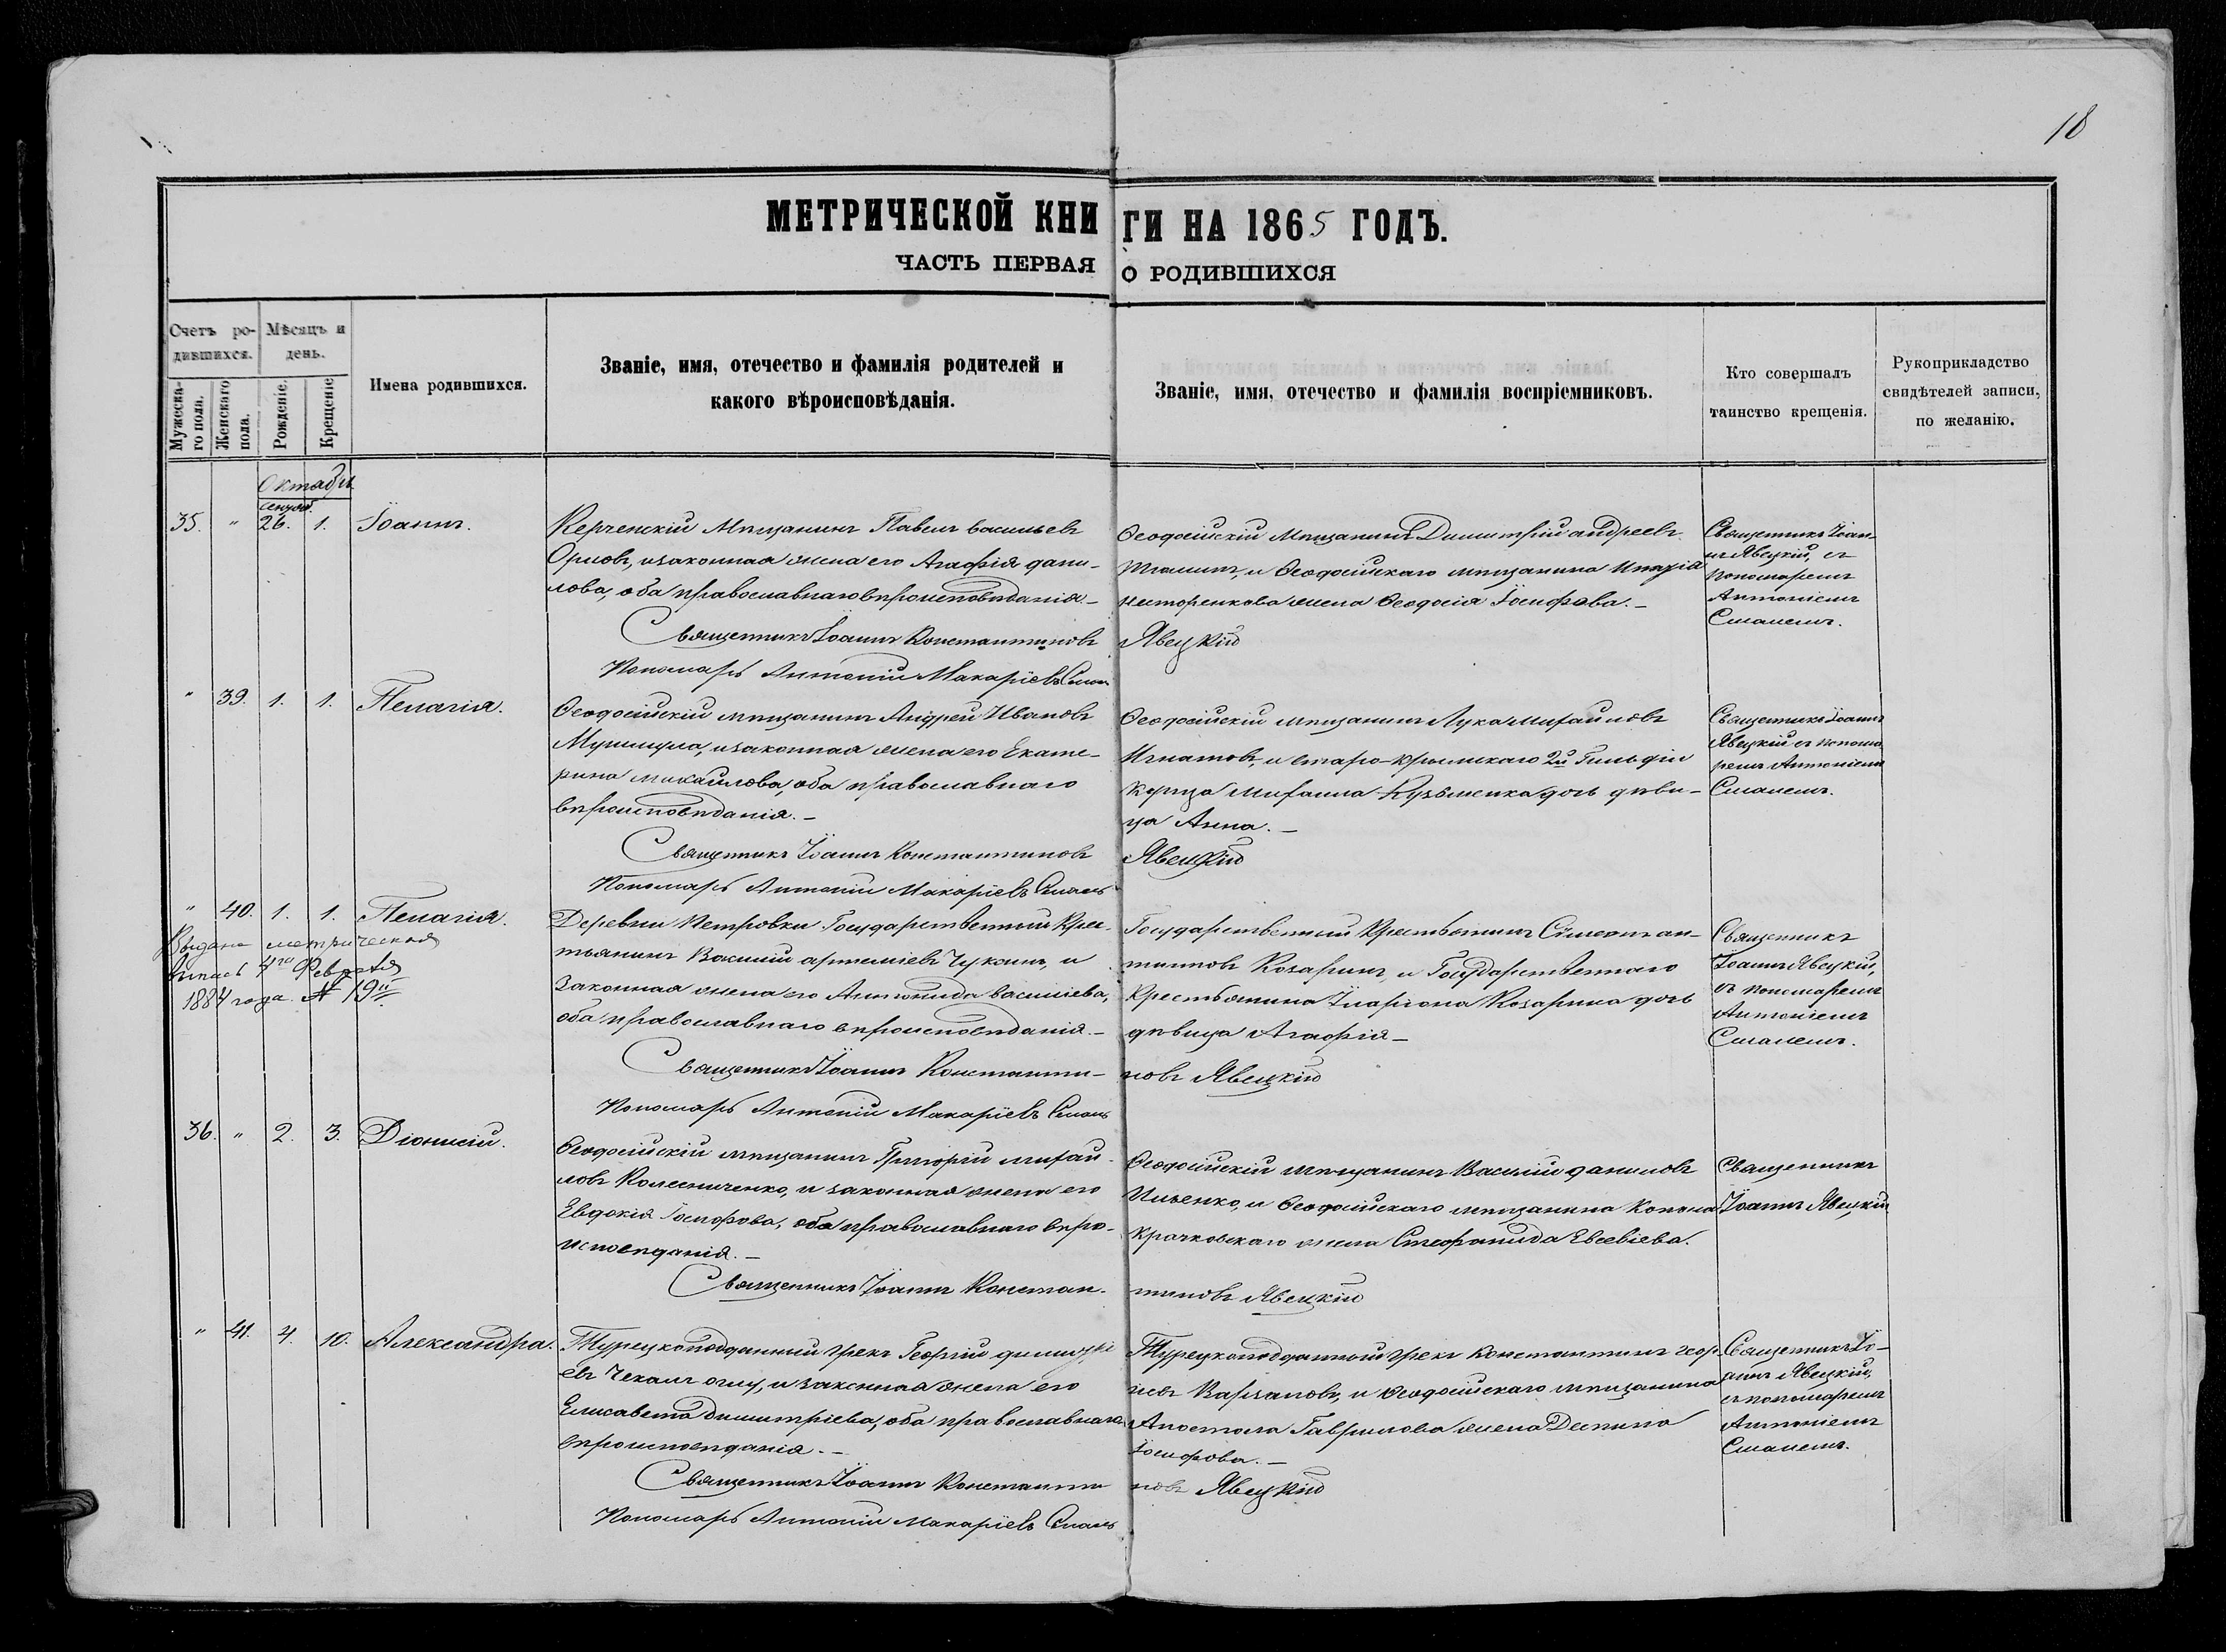 18
МЕТРИЧЕСКОЙ КНИГИ НА 1865 ГОДЪ.
ЧАСТЬ ПЕРВАЯ О РОДИВШИХСЯ
Счетъ ро-
дившихся.
Мужеска-
го пола.
Женскаго
пола.
Мѣсяцъ и
день.
Рожденіе.
Крещеніе
Имена родившихся.
Званіе, имя, отечество и фамилія родителей и
какого вѣроисповѣданія.
Званіе, имя, отечество и фамилія воспріемниковъ.
Кто совершалъ
таинство крещенія.
Рукоприкладство
свидѣтелей записи,
по желанію.
Октября
35. " 26. 1. Іоаннъ.
Керченскій Мѣщанинъ Павелъ Васильевъ
Орловъ, и законная жена его Агафія Дани-
лова, оба православнаго вѣроисповѣданія. –
Ѳеодосійскій Мѣщанинъ Димитрій Андреевъ
и Ѳеодосійскаго мѣщанина
Несторенкова жена Ѳеодосія Іосифова. –
Священникъ Іоан-
нъ Явецкій, съ
Пономаремъ
Антоніемъ
Священникъ Іоаннъ Константиновъ Явецкій
Пономарь Антоній Макаріевъ
" 39. 1. 1. Пелагія.
Ѳеодосійскій мѣщанинъ Андрей Ивановъ
и законная жена его Екате-
рина Михайлова, оба православнаго
вѣроисповѣданія. –
Ѳеодосійскій мѣщанинъ Лука Михайловъ
Игнатовъ, и старо-крымскаго 2й Гильдіи
купца Михаила Кузьменка дочь дѣви-
ца Анна. –
Священникъ Іоаннъ
Явецкій съ пономо-
ремъ Антоніемъ
Священникъ Іоаннъ Константиновъ Явецкій
Пономарь Антоній Макаріевъ
" 40. 1. 1. Пелагія.
Выдана метрическая
выпись 4го Февраля
1884 года. № 19й
Деревни Петровки Государственный Крес-
тьянинъ Василій Артеміевъ Чукинъ, и
законная жена его Антонида Васильева,
оба православнаго вѣроисповѣданія. –
Государственный Крестьянинъ
Козаринъ, и Государственнаго
Крестьянина Иларіона Козарина дочь
дѣвица Агафія –
Священникъ
Іоаннъ Явецкій,
съ пономаремъ
Антоніемъ
Священникъ Іоаннъ Константи- новъ Явецкій
Пономарь Антоній Макаріевъ
36. " 2. 3. Діонисій.
Ѳеодосійскій мѣщанинъ Григорій Михай-
ловъ Колесниченко, и законная жена его
Евдокія Іосифова, оба православнаго вѣро-
исповѣданія. –
Ѳеодосійскій мѣщанинъ Василій Даниловъ
Ильенко, и Ѳеодосійскаго мѣщанина Конона
Крачковскаго жена Стефанида Евсевіева.
Священникъ
Іоаннъ Явецкій
Священникъ Іоаннъ Констан- тиновъ Явецкій
" 41. 4. 10. Александра.
Турецкоподданный грекъ Георгій Димитрі
евъ Чекалъ оглу, и законная жена его
Елисавета Димитріева, оба православнаго
вѣроисповѣданія. –
Турецкоподданный грекъ Константинъ Геор-
гіевъ и Ѳеодосійскаго мѣщанина
Апостола Гаврилова жена Деспина
Іосифова. –
Священникъ Іо-
аннъ Явецкій,
съ пономаремъ
Антоніемъ
Священникъ Іоаннъ Константи новъ Явецкій
Пономарь Антоній Макаріевъ